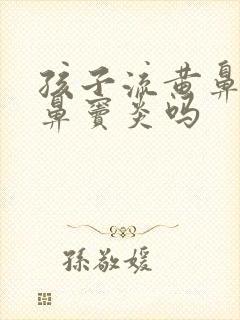 孩子流黄鼻
鼻窦炎吗
孫敬媛